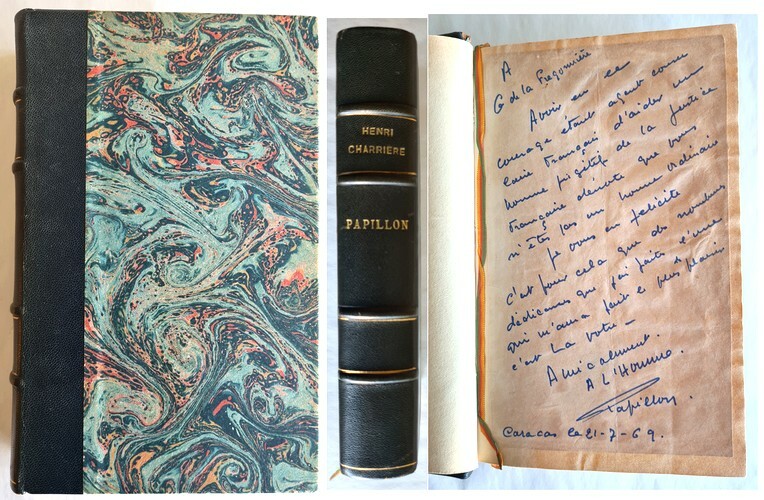 HENRI
CHARRIÈRE
PAPILLON
A
G de la Fregonnière
Avoir eu ce
courage étant agent consu
laire Français d'aider un
homme fugitif de la Justice
Française dénote que vous
n'êtes pas un homme ordinaire
Je vous en félicite
c'est pour cela que des nombreuses
dédicaces que j'ai faites l'une
qui m'aura fait le plus plaisir
c'est la votre -
Amicalement.
A L'Homme.
Papillon
Caracas le 21-7-69.